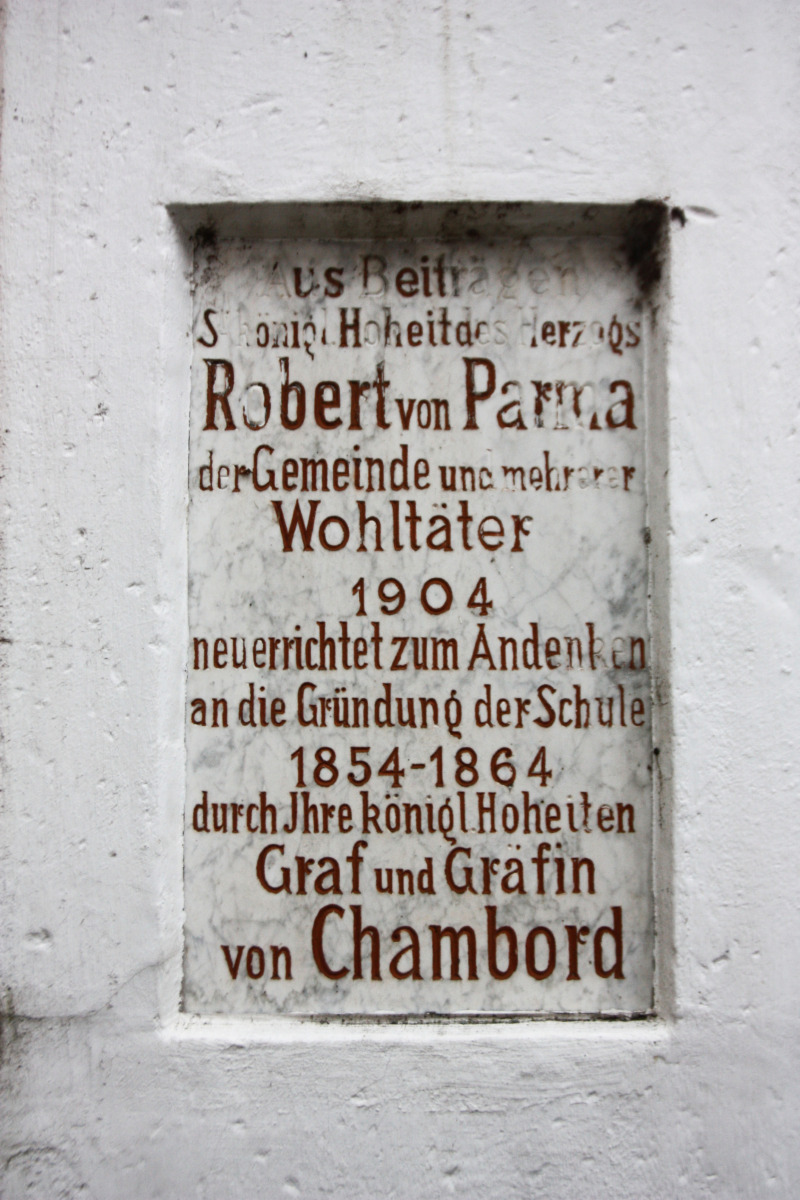 Aus Beiträgen
S königl. Hoheit des Herzogs
Robert von Parma
der Gemeinde und mehrerer
Wohltäter
1904
neuerrichtet zum Andenken
an die Gründung der Schule
1854-1864
durch Jhre königl. Hoheiten
Graf und Gräfin
von Chambord